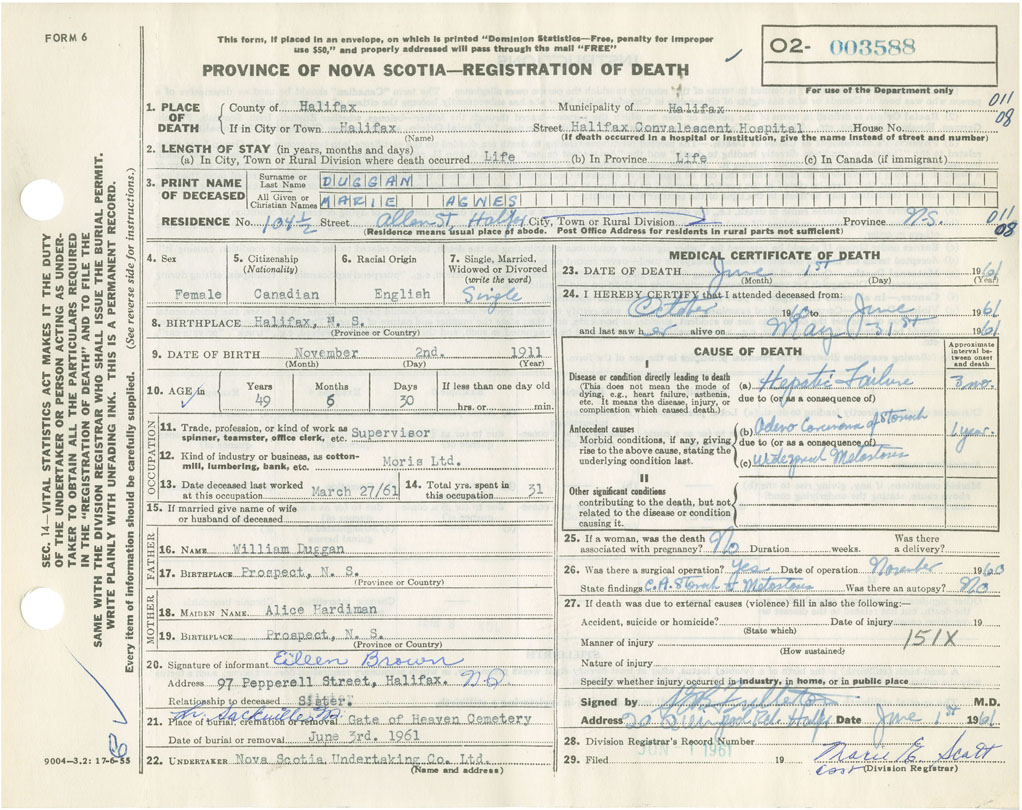 FORM 6
This form, if placed in an envelope, on which is printed "Dominion Statistics—Free, penalty for improper
use $50," and properly addressed will pass through the mail "FREE"
PROVINCE OF NOVA SCOTIA—REGISTRATION OF DEATH
02- 003588
For use of the Department only
1. PLACE OF DEATH County of Halifax Municipality of Halifax 011
If in City or Town Halifax Street Halifax Convalescent Hospital House No. 08
(Name) (If death occurred in a hospital or institution, give the name instead of street and number)
2. LENGTH OF STAY (in years, months and days)
(a) In City, Town or Rural Division where death occurred Life (b) In Province Life (c) In Canada (if immigrant)
3. PRINT NAME OF DECEASED Surname or Last Name DUGGAN
All Given or Christian Names MARIE AGNES
RESIDENCE No. 104½ Street Allen St, Halifx City, Town or Rural Division Province N.S. 011
(Residence means usual place of abode. Post Office Address for residents in rural parts not sufficient) 08
4. Sex Female
5. Citizenship (Nationality) Canadian
6. Racial Origin English
7. Single, Married, Widowed or Divorced (write the word) Single
8. BIRTHPLACE Halifax, N. S.
(Province or Country)
9. DATE OF BIRTH November 2nd. 1911
(Month) (Day) (Year)
10. AGE in Years Months Days If less than one day old
49 6 30 hrs. or min.
OCCUPATION
11. Trade, profession, or kind of work as
spinner, teamster, office clerk, etc. Supervisor
12. Kind of industry or business, as cotton-
mill, lumbering, bank, etc. Moris Ltd.
13. Date deceased last worked at this occupation March 27/61 14. Total yrs. spent in this occupation 31
15. If married give name of wife
or husband of deceased
FATHER
16. NAME William Duggan
17. BIRTHPLACE Prospect, N. S.
(Province or Country)
MOTHER
18. MAIDEN NAME Alice Hardiman
19. BIRTHPLACE Prospect, N. S.
(Province or Country)
20. Signature of informant Eileen Brown
Address 97 Pepperell Street, Halifax.
Relationship to deceased Sister.
21. Place of burial, cremation or removal Sackville Gate of Heaven Cemetery
Date of burial or removal June 3rd. 1961
22. UNDERTAKER Nova Scotia Undertaking Co. Ltd.
(Name and address)
MEDICAL CERTIFICATE OF DEATH
23. DATE OF DEATH June 1st 1961
(Month) (Day) (Year)
24. I HEREBY CERTIFY that I attended deceased from:
October 1960 to June 1961
and last saw her alive on May 31st 1961
CAUSE OF DEATH
Approximate interval between onset and death
I
Disease or condition directly leading to death
(This does not mean the mode of
dying, e.g., heart failure, asthenia,
etc. It means the disease, injury, or
complication which caused death.)
(a) Hepatic Failure 3 mo.
due to (or as a consequence of)
Antecedent causes
Morbid conditions, if any, giving
rise to the above cause, stating the
underlying condition last.
(b) Adeno Carcinoma of Stomach 1 year.
due to (or as a consequence of)
(c) Widespread Metastases
II
Other significant conditions
contributing to the death, but not
related to the disease or condition
causing it.
25. If a woman, was the death associated with pregnancy? No Duration weeks. Was there a delivery?
26. Was there a surgical operation? Yes Date of operation November 1960
State findings C.A. Stomach Metastases Was there an autopsy? No
27. If death was due to external causes (violence) fill in also the following:—
Accident, suicide or homicide? Date of injury 19
(State which)
Manner of injury 151X
(How sustained)
Nature of injury
Specify whether injury occurred in industry, in home, or in public place
Signed by M.D.
Address Halifx Date June 1st 1961
28. Division Registrar's Record Number
JUN - 1 1961
29. Filed 19 Marie E. Scott
(Division Registrar)
SEC. 14—VITAL STATISTICS ACT MAKES IT THE DUTY
OF THE UNDERTAKER OR PERSON ACTING AS UNDER-
TAKER TO OBTAIN ALL THE PARTICULARS REQUIRED
IN THE "REGISTRATION OF DEATH" AND TO FILE THE
SAME WITH THE DIVISION REGISTRAR WHO SHALL ISSUE THE BURIAL PERMIT.
WRITE PLAINLY WITH UNFADING INK. THIS IS A PERMANENT RECORD.
Every item of information should be carefully supplied. (See reverse side for instructions.)
9004—3.2: 17-6-55